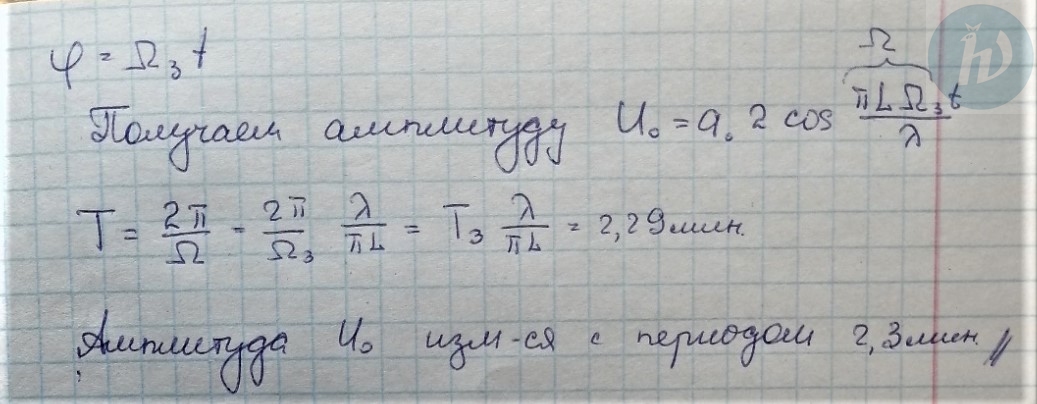 φ = Ω₃ t
Получаем амплитуду U₀ = a₀ 2 cos (πLΩ₃t)/λ Ω
T = 2π/Ω = 2π/Ω₃ λ/πL = T₃ λ/πL = 2,29 мин.
Амплитуда U₀ изм-ся с периодом 2,3 мин //